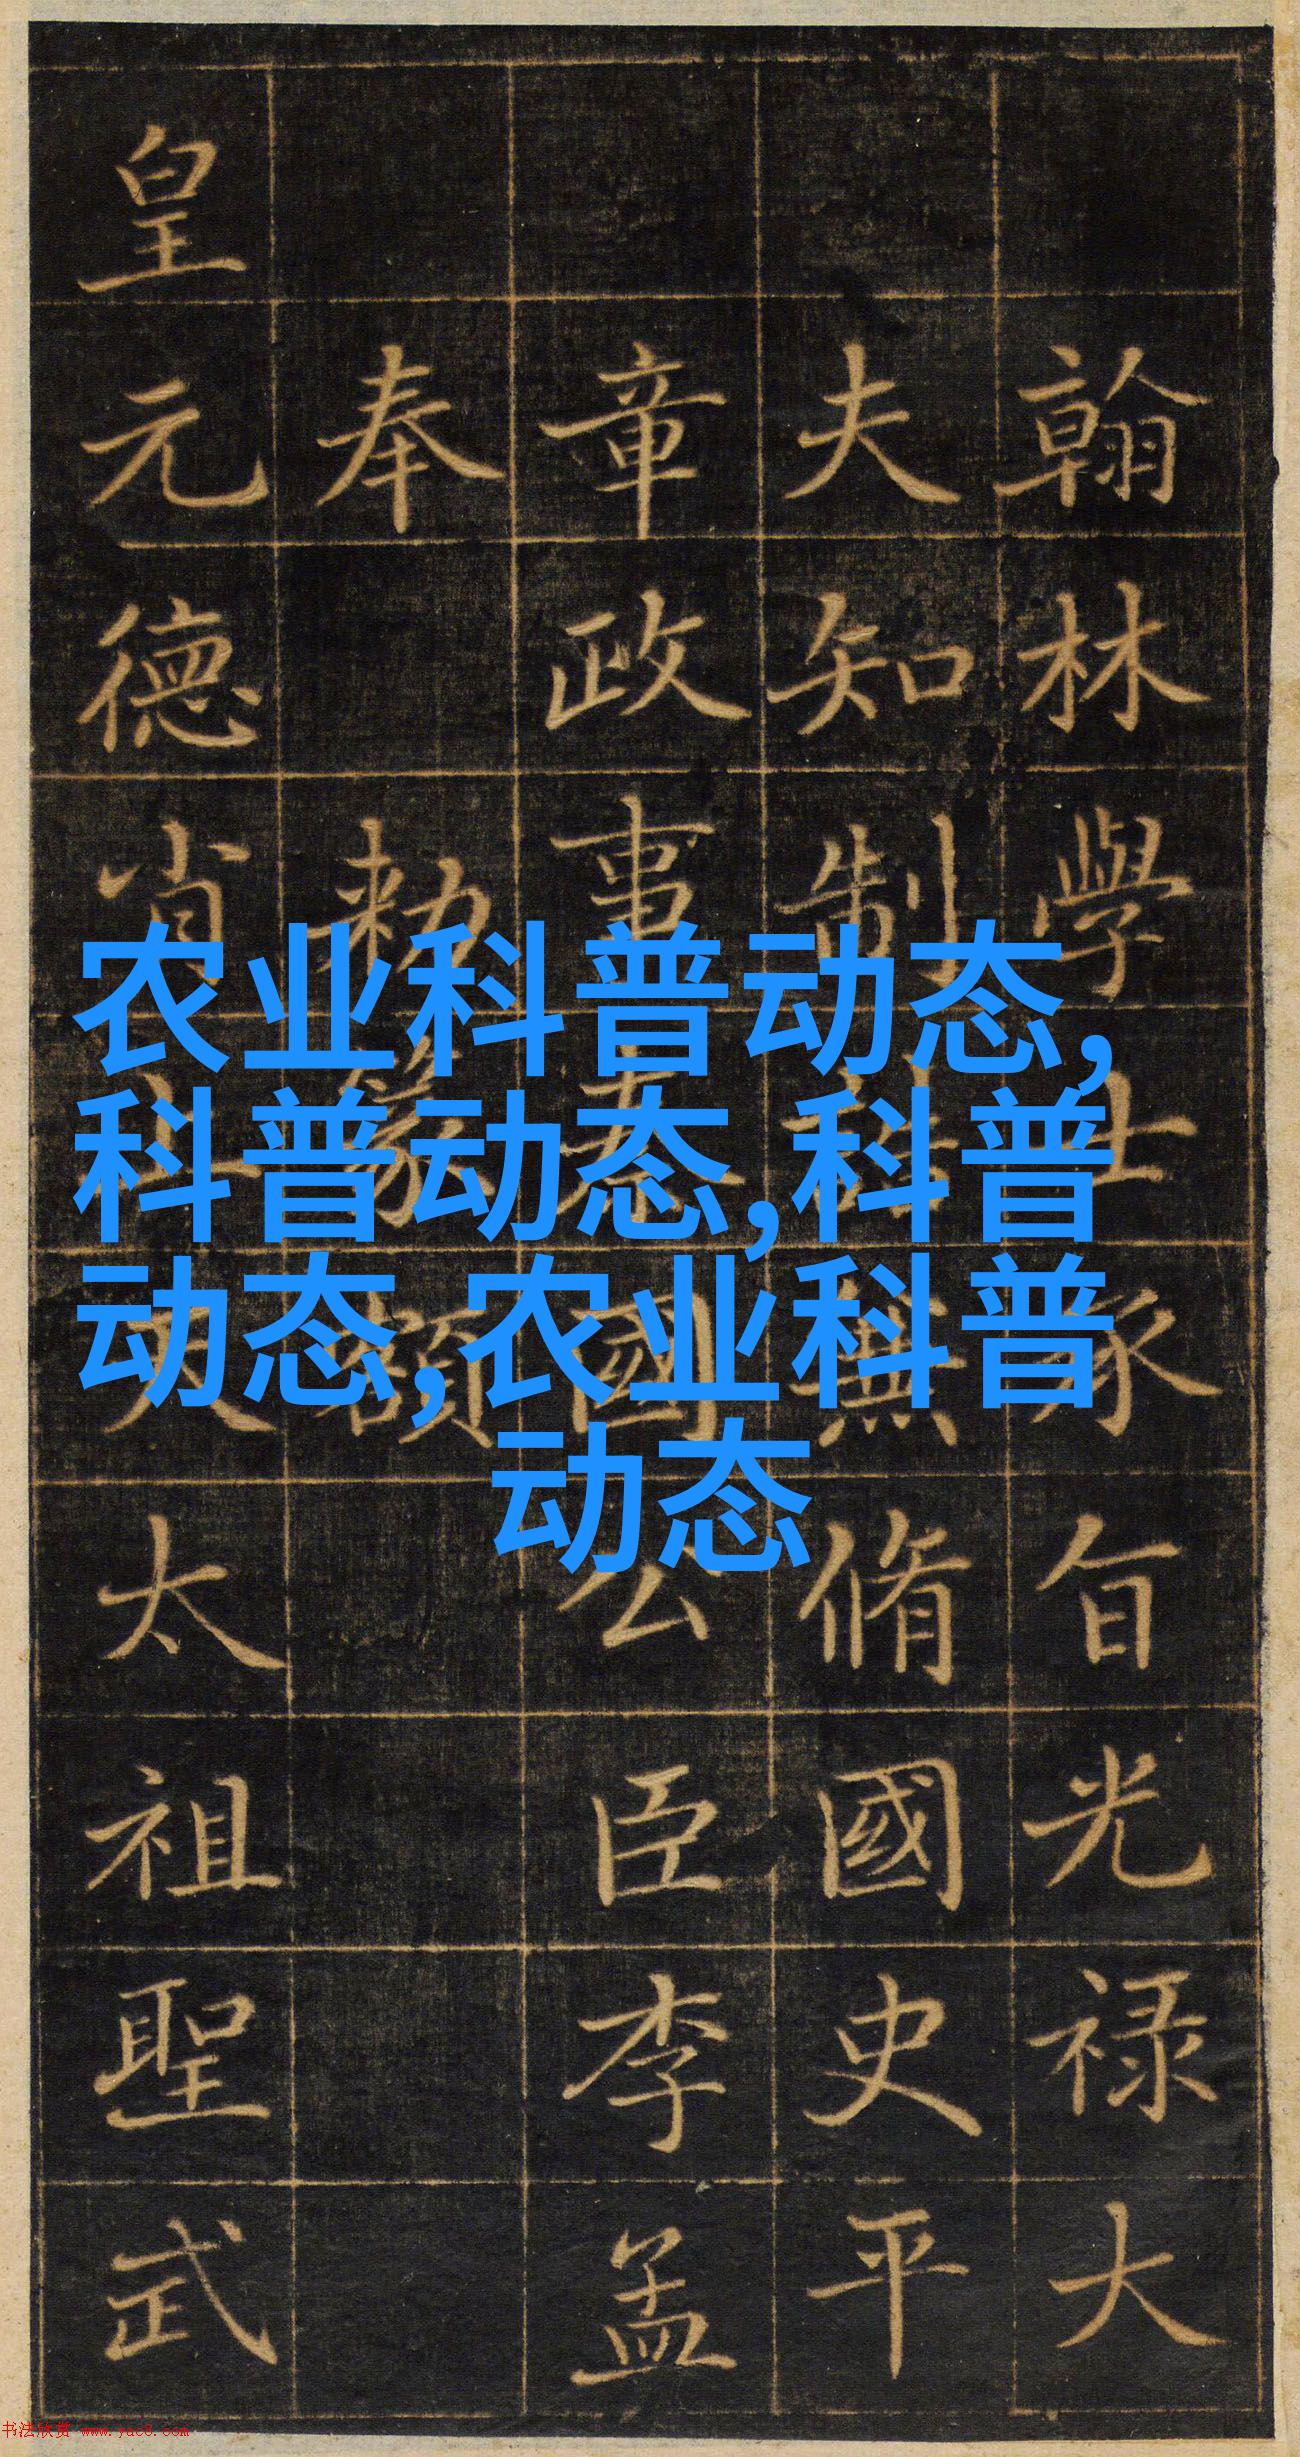 农业科普动态,
科普动态,科普
动态,农业科普
动态
翰林學士承旨光禄大
夫知制誥兼脩國史平
章政事國公臣李孟
奉勑篆額
皇元德肖上太祖聖武
书法欣赏 www.yac8.com